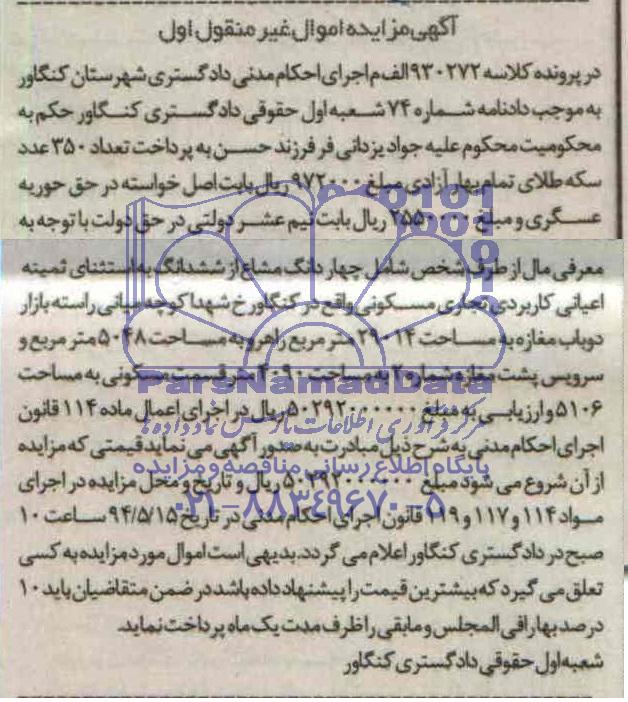 آگهی مزایده اموال غیر منقول اول
در پرونده کلاسه ۹۳۰۲۷۲ الف م اجرای احکام مدنی دادگستری شهرستان کنگاور
به موجب دادنامه شماره ۷۴ شعبه اول حقوقی دادگستری کنگاور حکم به
محکومیت محکوم علیه جواد یزدانی فر فرزند حسن به پرداخت تعداد ۳۵۰ عدد
سکه طلای تمام بهار آزادی مبلغ ۹۷۲۰۰۰ ریال بابت اصل خواسته در حق حوریه
عسگری و مبلغ ۲۵۵۰۰۰۰ ریال بابت نیم عشر دولتی در حق دولت با توجه به
معرفی مال از طرف شخص شامل چهار دانگ مشاع از ششدانگ به استثنای ثمینه
اعیانی کاربردی تجاری مسکونی واقع در کنگاور خ شهدا کوچه میانی راسته بازار
دوباب مغازه به مساحت ۲۹۰۱۴ متر مربع راهرو به مساحت ۵۰۴۸ متر مربع و
سرویس پشت مغازه شماره ۲ به مساحت ۴۰۹۰ متر قسمت مسکونی به مساحت
۵۱۰۶ و ارزیابی به مبلغ ۵۰۲۹۲۰۰۰۰۰۰ ریال در اجرای اعمال ماده ۱۱۴ قانون
اجرای احکام مدنی به شرح ذیل مبادرت به صدور آگهی می نماید قیمتی که مزایده
از آن شروع می شود مبلغ ۵۰۲۹۲۰۰۰۰۰۰ ریال و تاریخ و محل مزایده در اجرای
مواد ۱۱۴ و ۱۱۷ و ۱۱۹ قانون اجرای احکام مدنی در تاریخ ۹۴/۵/۱۵ ساعت ۱۰
صبح در دادگستری کنگاور اعلام می گردد. بدیهی است اموال مورد مزایده به کسی
تعلق می گیرد که بیشترین قیمت را پیشنهاد داده باشد در ضمن متقاضیان باید ۱۰
درصد بها را فی المجلس و مابقی را ظرف مدت یک ماه پرداخت نماید.
شعبه اول حقوقی دادگستری کنگاور
ParsNamadData
مرکز فرآوری اطلاعات پارس نماد داده ها
پایگاه اطلاع رسانی مناقصه و مزایده
۰۲۱-۸۸۳۴۹۶۷۰-۵